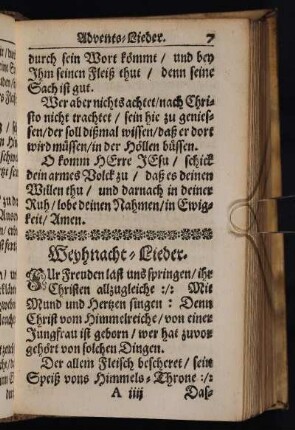 Advents-Lieder. 7
durch sein Wort kömmt / und bey
Ihm seinen Fleiß thut / denn seine
Sach ist gut.
Wer aber nichts achtet / nach Chri-
sto nicht trachtet / sein hie zu genies-
sen / der soll dißmal wissen / daß er dort
wird müssen / in der Höllen büssen.
O komm HErre JEsu / schick
dein armes Volck zu / daß es deinen
Willen thu / und darnach in deiner
Ruh / lobe deinen Nahmen / in Ewig-
keit / Amen.
Weyhnacht-Lieder.
Für Freuden last uns springen / ihr
Christen allzugleiche :/: Mit
Mund und Hertzen singen : Denn
Christ vom Himmelreiche / von einer
Jungfrau ist geborn / wer hat zuvor
gehört von solchen Dingen.
Der allem Fleisch bescheret / sein
Speiß vons Himmels-Throne :/:
A iiij Das-